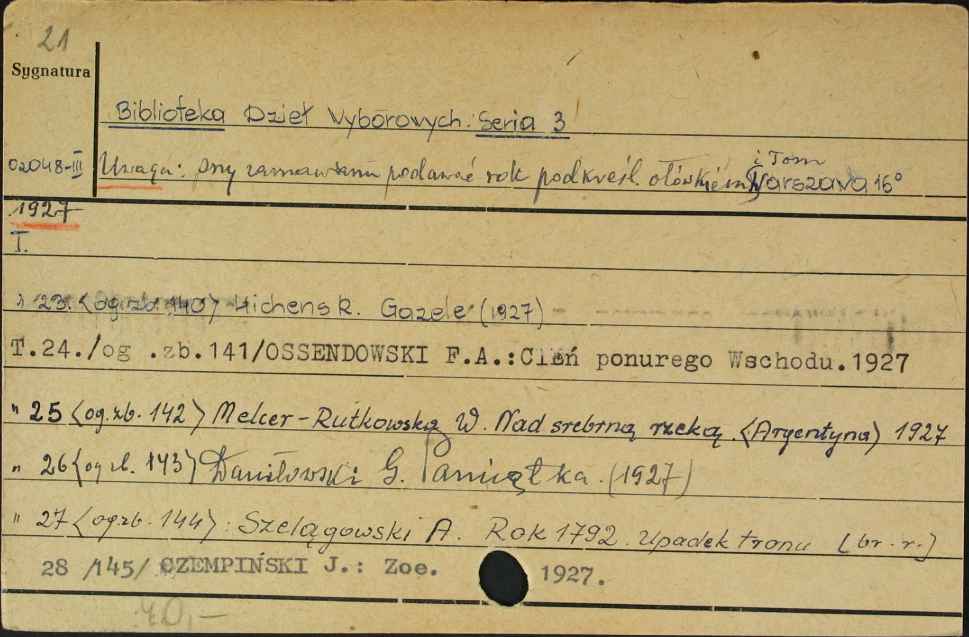 21
Sygnatura
Biblioteka Dzieł Wyborowych. Seria 3
i Tom
02048-III Uwaga: przy zamawianiu podawać rok podkreśl. ołówkiem Warszawa 16°
1927
T.
" 23. <og.zb. 140> Hichens R. Gazele (1927)
T.24./og .zb.141/OSSENDOWSKI F.A.:CIEń ponurego Wschodu.1927
" 25 <og.zb. 142> Melcer-Rutkowska W. Nad srebrną rzeką. <Argentyna> 1927
" 26 <og zb. 143> Daniłowski G. Pamiątka. (1927)
" 27 <og.zb. 144>: Szelągowski A. Rok 1792. Upadek tronu [br. r.]
28 /145/ CZEMPIŃSKI J.: Zoe. 1927.
40,-